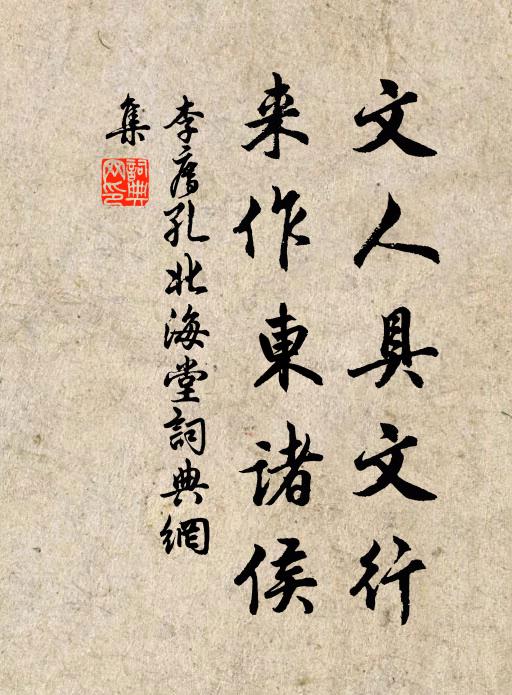 文人具文行
来作東諸侯
李廌孔北海堂詞典網
集
詞典網印